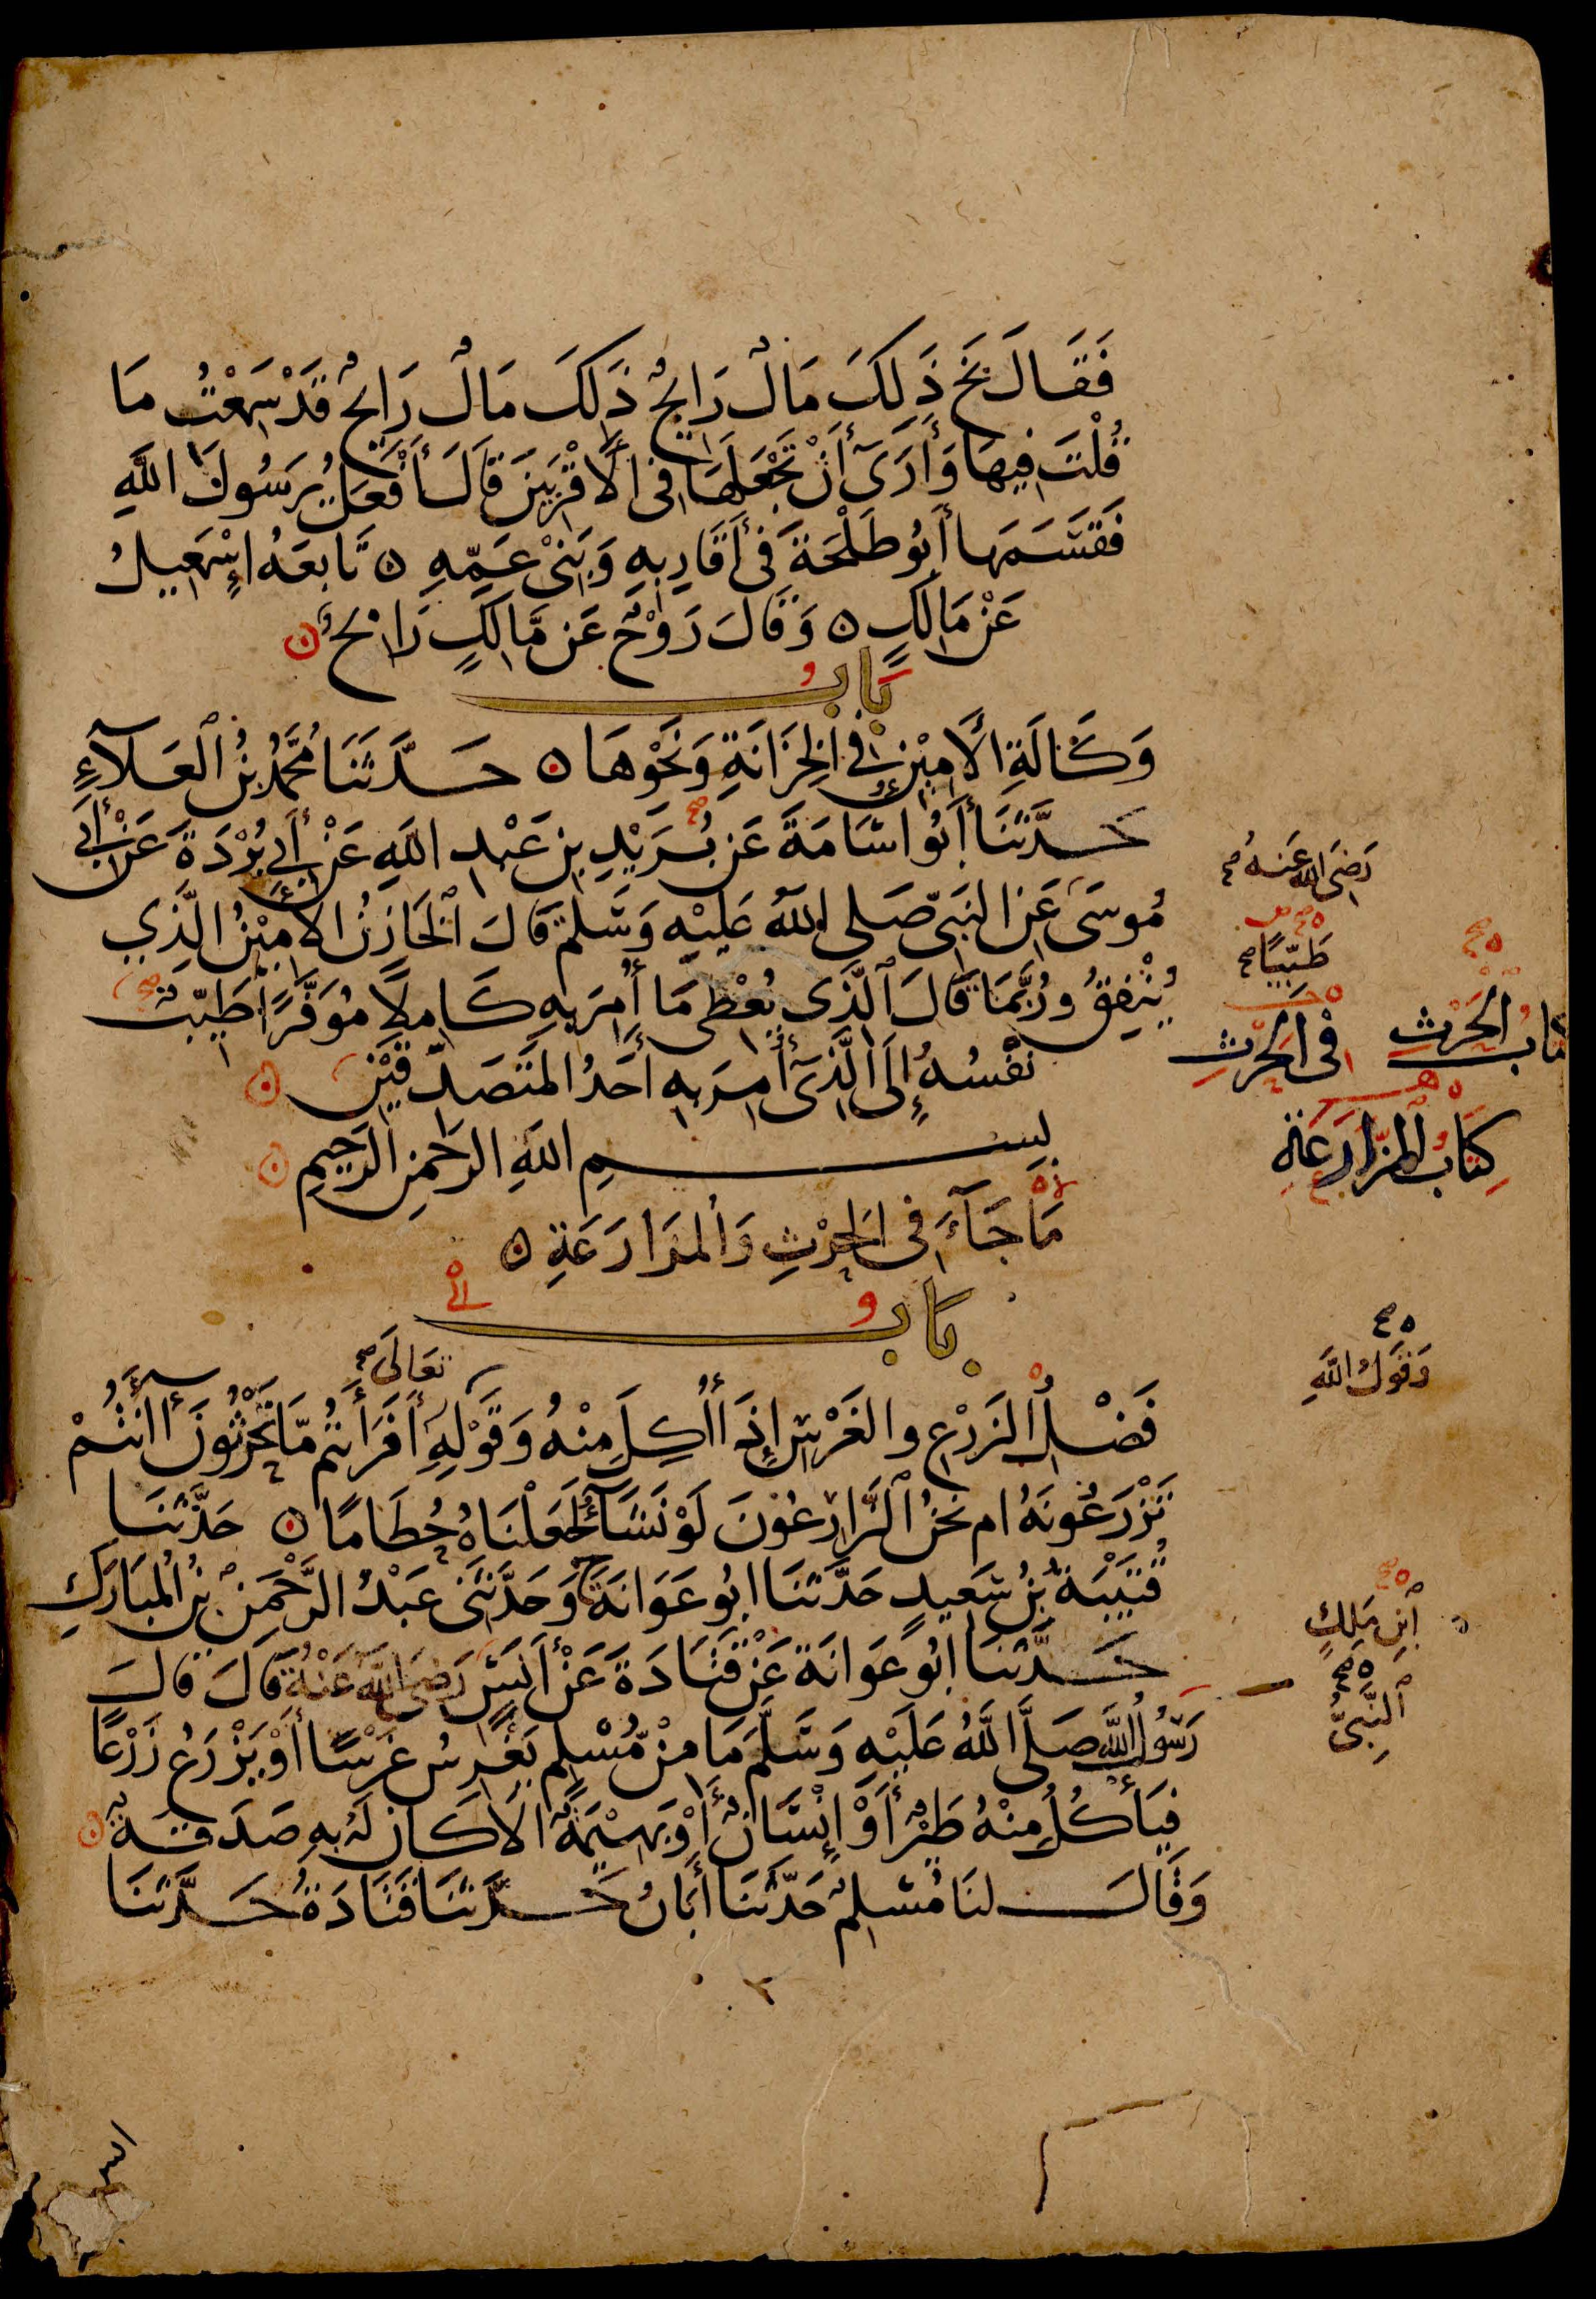 فَقَالَ بَخْ ذَلِكَ مَالٌ رَايِحٌ ذَلِكَ مَالٌ رَايِحٌ قَدْ سَمِعْتُ مَا
قُلْتَ فِيهَا وَأَرَى أَنْ تَجْعَلَهَا فِي الْأَقْرَبِينَ قَالَ أَفْعَلُ يٰرَسُولَ اللَّهِ
فَقَسَمَهَا أَبُو طَلْحَةَ فِي أَقَارِبِهِ وَبَنِي عَمِّهِ ٥ تَابَعَهُ إِسْمَعِيلُ
عَنْ مَالِكٍ ٥ وَقَالَ رَوْحٌ عَنْ مَّالِكٍ رَابِحٌ ٥
بَابُ
وَكَالَةِ الْأَمِيْنِ فِي الْخِزَانَةِ وَنَحْوِهَا ٥ حَدَّثَنَا مُحَمَّدُ بْنُ الْعَلَآءِ
حَدَّثَنَا أَبُو اسَامَةَ عَنْ بُرَيْدِ بْنِ عَبْدِ اللَّهِ عَنْ أَبِي بُرْدَةَ عَنْ أَبِي
مُوسَى عَنِ النَّبِيِّ صَلى اللَّهُ عَلَيْهِ وَسَلَّمَ قَالَ الْخَازِنُ الْأَمِيْنُ الَّذِي
يُنْفِقُ وَرُبَّمَا قَالَ الَّذِي يُعْطِي مَا أُمِرَ بِهِ كَامِلًا مُوَفَّرًا طَيِّبٌ
نَفْسُهُ إِلَى الَّذِي أُمِرَ بِهِ أَحَدُ الْمُتَصَدِّقَيْنِ ٥
بِسْمِ اللَّهِ الرَّحْمَنِ الرَّحِيمِ ٥
مَا جَآءَ فِي الْحَرْثِ وَالْمُزَارَعَةِ ٥
بَابُ
تَعَالَى صح
فَضْلُ الزَّرْعِ والْغَرْسِ إِذَا أُكِلَ مِنْهُ وَقَوْلِهِ أَفَرَأَيْتُمْ مَّا تَحْرُثُونَ أَأَنْتُمْ
تَزْرَعُونَهُ ام نَحْنُ الزَّارِعُوْنَ لَوْ نَشَآءُ لَجَعَلْنَاهُ حُطَامًا ٥ حَدَّثَنَا
قُتَيْبَةُ بْنُ سَعِيدٍ حَدَّثَنَا ابُو عَوَانَةَ ح وَحَدَّثَنِي عَبْدُ الرَّحْمَنِ بْنُ الْمُبَارَكِ
حَدَّثَنَا ابُو عَوَانَةَ عَنْ قَتَادَةَ عَنْ أَنَسٍ رَضِيَ اللَّهُ عَنْهُ قَالَ قَالَ
رَسُولُ اللَّهِ صَلَّى اللَّهُ عَلَيْهِ وَسَلَّمَ مَا مِنْ مُّسْلِمٍ يَغْرِسُ غَرْسًا أَوْ يَزْرَعُ زَرْعًا
فَيَأْكُلُ مِنْهُ طَيْرٌ أَوْ إِنْسَانٌ أَوْ بَهِيمَةٌ الَّا كَانَ لَهُ بِهِ صَدَقَةٌ ٥
وَقَالَ لنَا مُسْلِمٌ حَدَّثَنَا أَبَانُ حَدَّثَنَا قَتَادَةُ حَدَّثَنَا
رَضِيَ اللَّهُ عَنهُ صح
طَيِّبًا صح
كِتَابُ الْحَرْثِ
فِي الْحَرْثِ
كِتَابُ الْمُزَارَعَةِ
وَقَوْلُ اللَّهِ
ابْنِ مَلِكٍ
النَّبِيُّ
٢